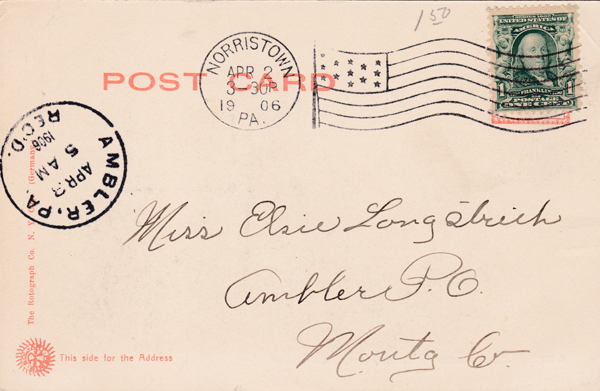 1 50
POST CARD
NORRISTOWN
APR 2
3-30P
19 06
PA.
UNITED STATES OF
AMERICA
FRANKLIN
1 POSTAGE 1
ONE CENT
AMBLER, PA.
APR 3
5 AM
1906
REC'D.
Miss Elsie Longstreth
Ambler P.O.
Montg Co.
The Rotograph Co. N. Y.
(Germany)
This side for the Address